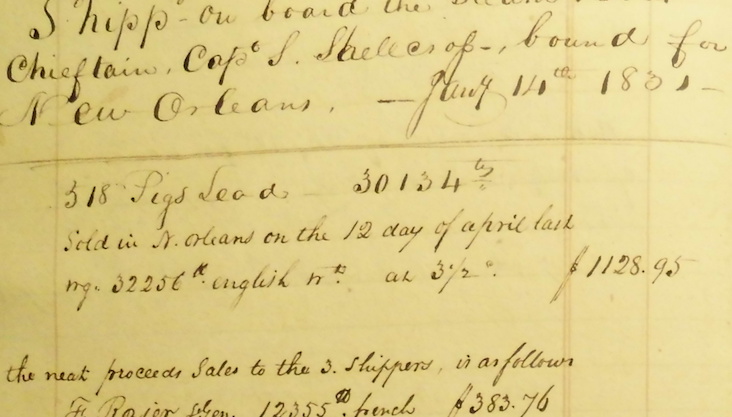 Shipp⁠ᵈ on board the Steam
Chieftain, Capᵗ S. Shellcross, bound for
New Orleans. — Jany 14th 1831 —
318 Pigs Lead 30134 lbs
Sold in N. orleans on the 12 day of april last
wg. 32256 lb english wt. at 3 1/2 c. $1128.95
the neat proceeds Sales to the 3. Shippers, is as follows
F. Rozier Sen. 12355 lb french $383.76